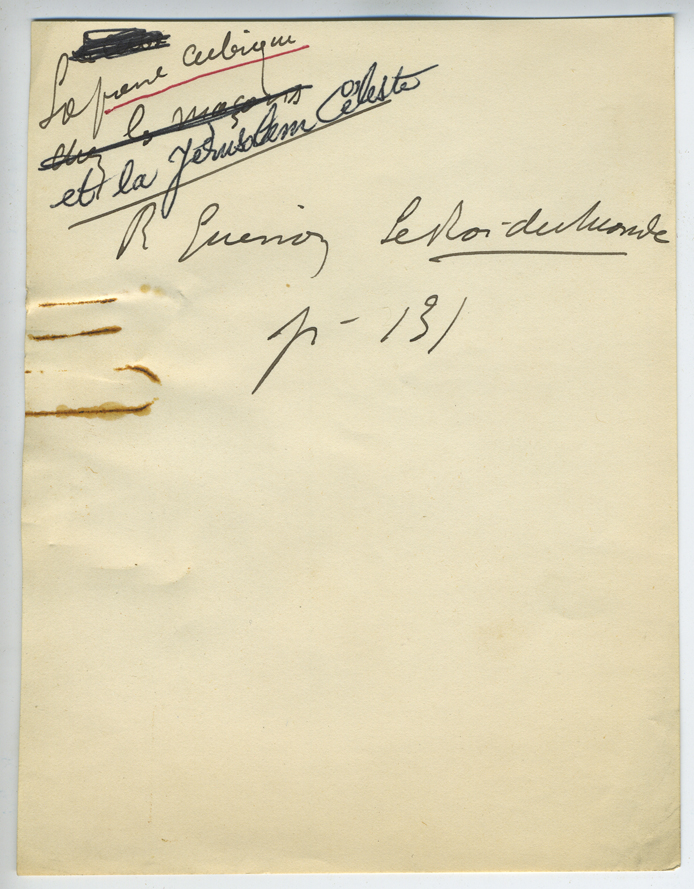 La pierre cubique
chez les maçons
et la Jérusalem Céleste
R Guenon Le Roi du Monde
p - 131